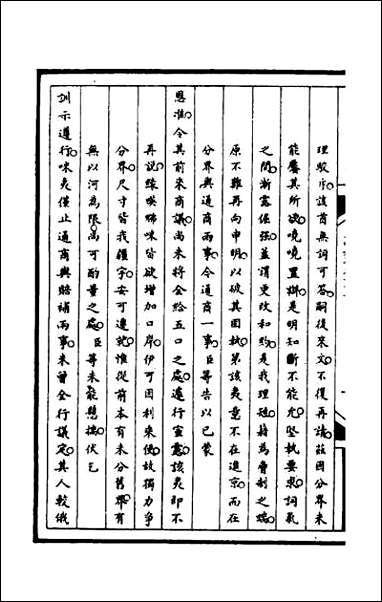 理駁斥。該酋無詞可答。嗣後來文。不復再請。茲因分界未
能饜其所欲。嘵嘵置辯。是明知斷不能允。堅執要求。詞氣
之間。漸露倔强。並謂更改和約。是我理短。藉為脅制之端。
原不難再向申明。以破其固執。第該夷意不在進京。而在
分界與通商兩事。今通商一事。臣等告以已蒙
恩准。令其前來商議。尚未將全給五口之處。遽行宣露。該夷即不
再說。緣㗆咈咪皆欲增加口岸。伊可因利乘便。故獨力爭
分界。尺寸皆我疆宇。安可遷就。惟從前本有未分舊界。有
無以河為限。尚可酌量之處。臣等未能懸揣。伏乞
訓示遵行。咪夷僅止通商與賠補兩事。未曾全行議定。其人較俄